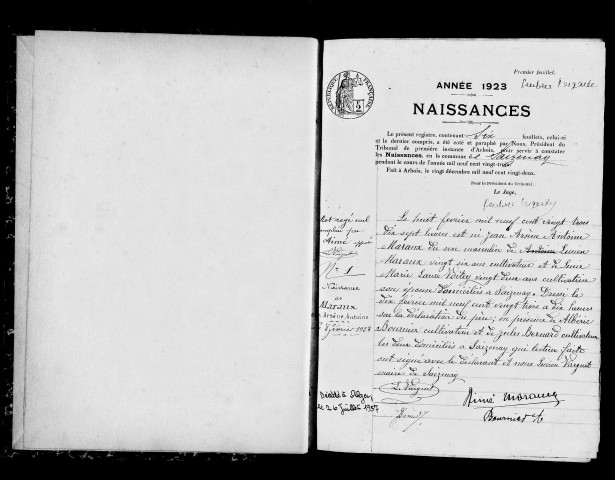 Premier feuillet.
ANNÉE 1923
NAISSANCES
RÉPUBLIQUE FRANÇAISE
Le présent registre, contenant Six feuillets, celui-ci
et le dernier compris, a été coté et paraphé par Nous, Président du
Tribunal de première instance d'Arbois, pour servir à constater
les Naissances, en la commune de Saizenay
pendant le cours de l'année mil neuf cent vingt-trois
Fait à Arbois, le vingt décembre mil neuf cent vingt-deux.
Pour le Président du Tribunal :
Le Juge,
Mot rayé nul
Aimé
No 1
Naissance
de
Maraux
Jean Arsène Antoine
Décédé à
le 26 Juillet 1987
Le huit février mil neuf cent vingt trois
dix sept heures est né Jean Arsène Antoine
Maraux du sexe masculin de Antoine Lucien
Maraux vingt six ans cultivateur et de
Marie Laure vingt deux ans cultivatrice
son épouse domiciliés à Saizenay. Dressé le
dix février mil neuf cent vingt trois a dix heures
sur la déclaration du père, en présence de Albéric
Bournier cultivateur et de Jules Bernard cultivateur
les deux domiciliés a Saizenay qui lecture faite
ont signé avec le déclarant et nous Lucien
maire de Saizenay
Aimé Maraux
Bournier A